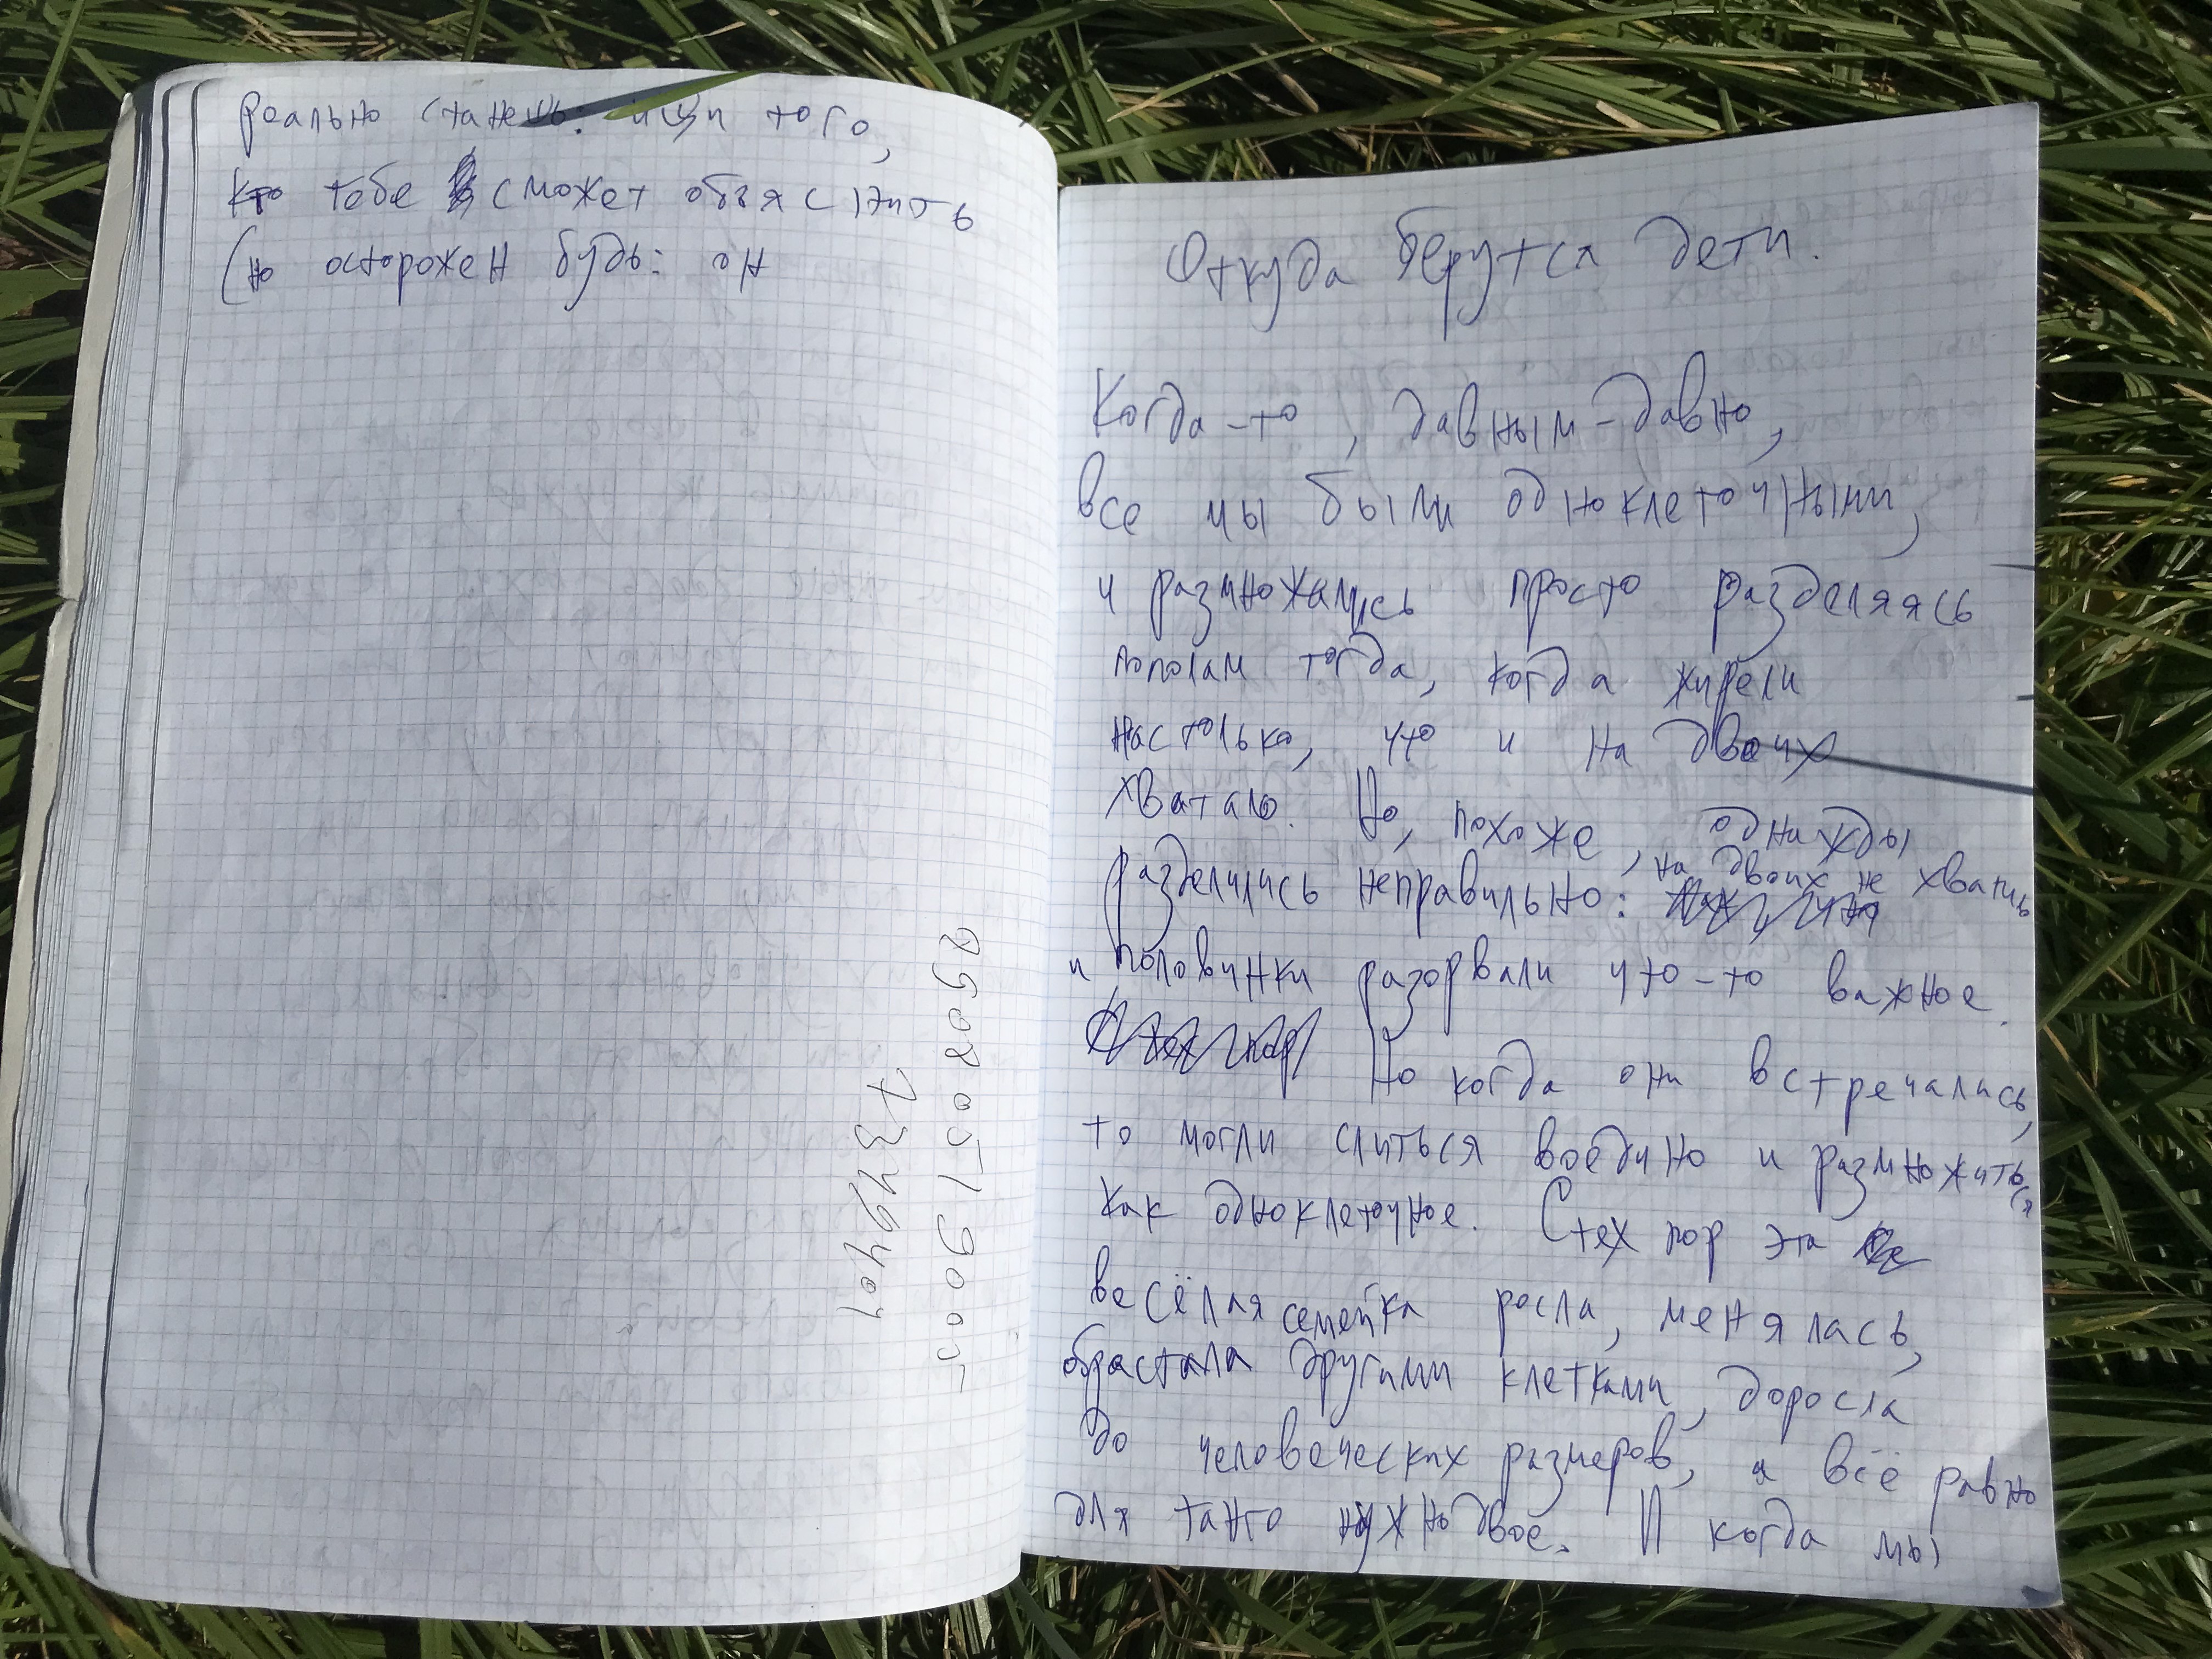 реально скажешь. ищи того,
кто тебе сможет объяснить
(но осторожен будь: он
7349404
29080519005
Откуда берутся дети.
Когда-то, давным-давно,
все мы были одноклеточными,
и размножались просто разделяясь
пополам тогда, когда жирели
настолько, что и на двоих
хватило. Но, похоже, однажды
разделились неправильно: на двоих не хватило
и половинки разорвали что-то важное.
Но когда они встречались,
то могли слиться воедино и размножиться,
как одноклеточное. С тех пор эта
весёлая семейка росла, менялась,
обрастала другими клетками, доросла
до человеческих размеров, а всё равно
для танго нужно двое. И когда мы